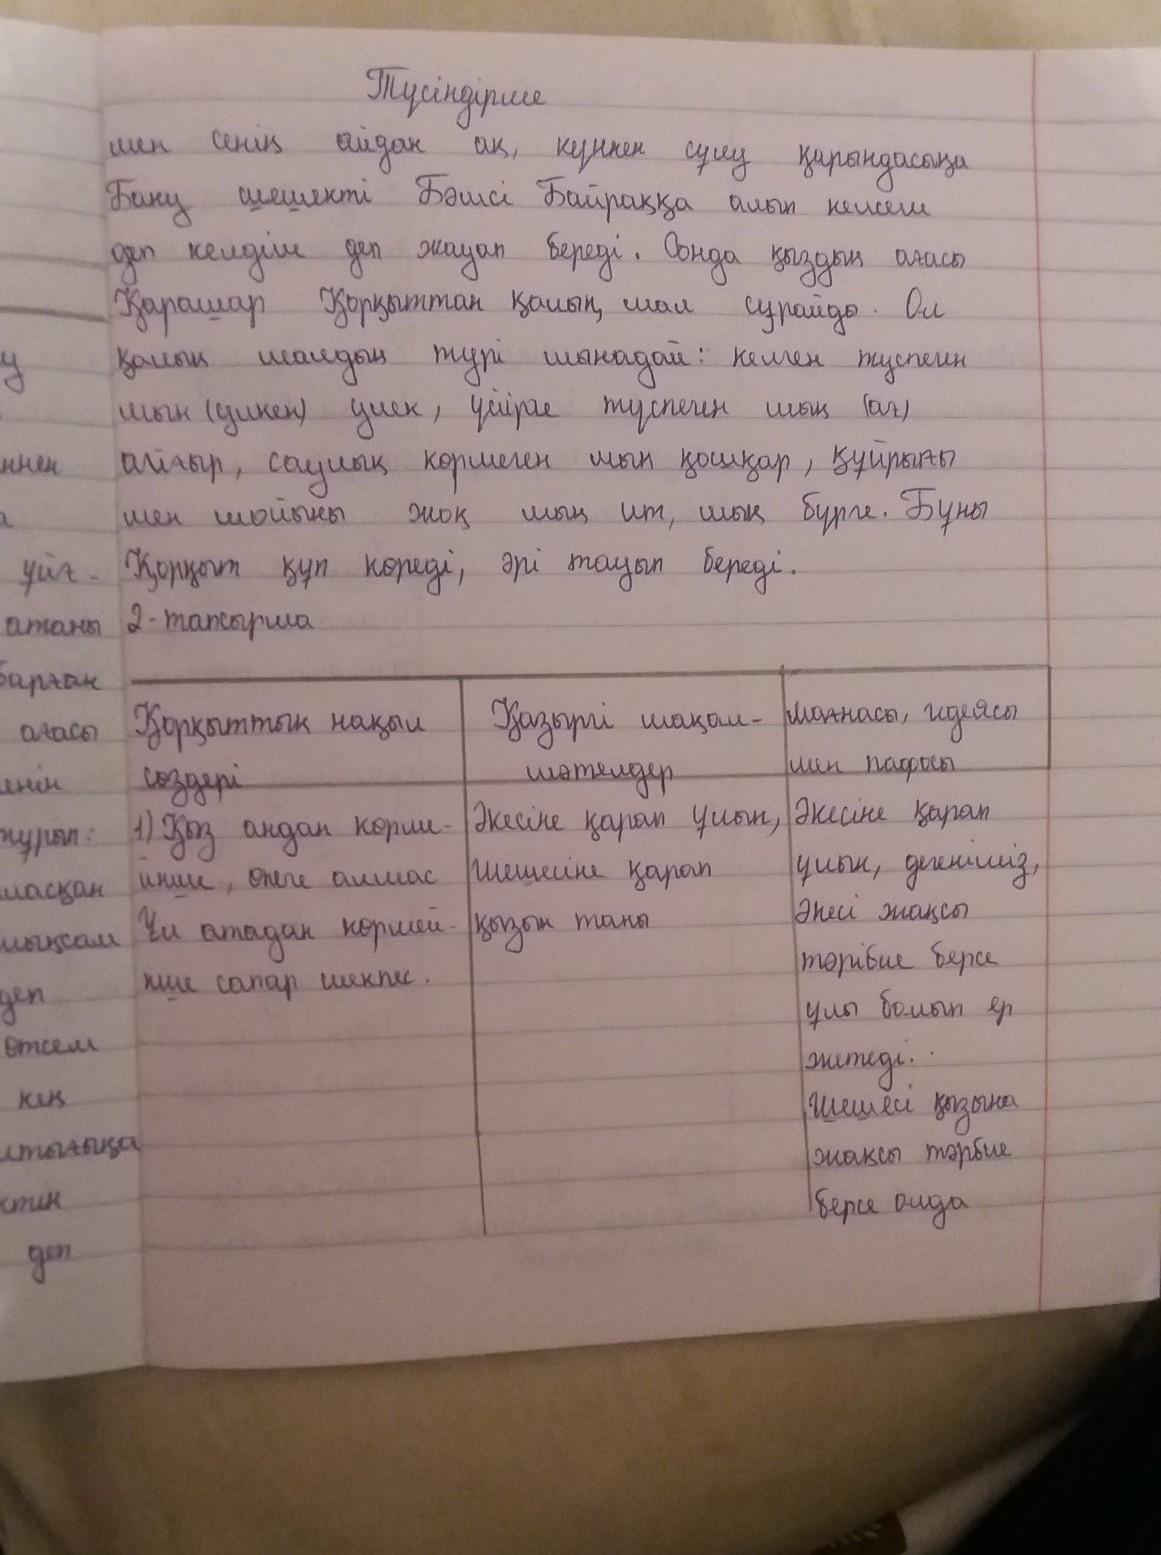 Түсіндірме
мен сенің айдан ақ, күннен сұлу қарындасыңа
Бану шешекті Бәмсі Байраққа алып келсем
деп келдім деп жауап береді. Сонда қыздың ағасы
Қарашар Қорқыттан қалың мал сұрайды. Ол
қалың малдың түрі мынадай: келген түспеген
мың (үлкен) үлек, үйірге түспеген мың (ат)
айғыр, саулық көрмеген мың қошқар, құйрығы
мен мойыны жоқ мың ит, мың бүрге. Бұны
Қорқыт құп көреді, әрі тауып береді.
2-тапсырма
Қорқыттың нақыл сөздері
Қазыргі мақал-мәтелдер
Мағнасы, идеясы мен пафосы
1) Қыз анадан көрме-
йінше, өнеге алмас
Ұл атадан көрмей-
нше сапар шекпес.
Әкесіне қарап ұлын,
Шешесіне қарап
қызын таны
Әкесіне қарап
ұлын, дегеніміз,
Әкесі жақсы
тәрібие берсе
ұлы болып ер
жетеді.
Шешесі қызына
жақсы тәрбие
берсе онда
у
ннен
үйг-
атаны
барған
ағасы
тұрып:
ласқан
деп
өтсем
кең
деп